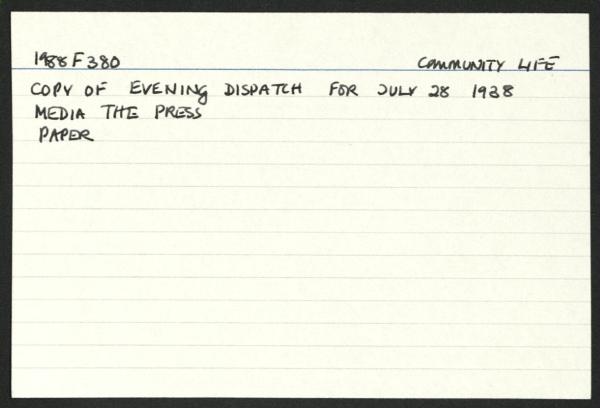 1988 F 380 COMMUNITY LIFE
COPY OF EVENING DISPATCH FOR JULY 28 1938
MEDIA THE PRESS
PAPER